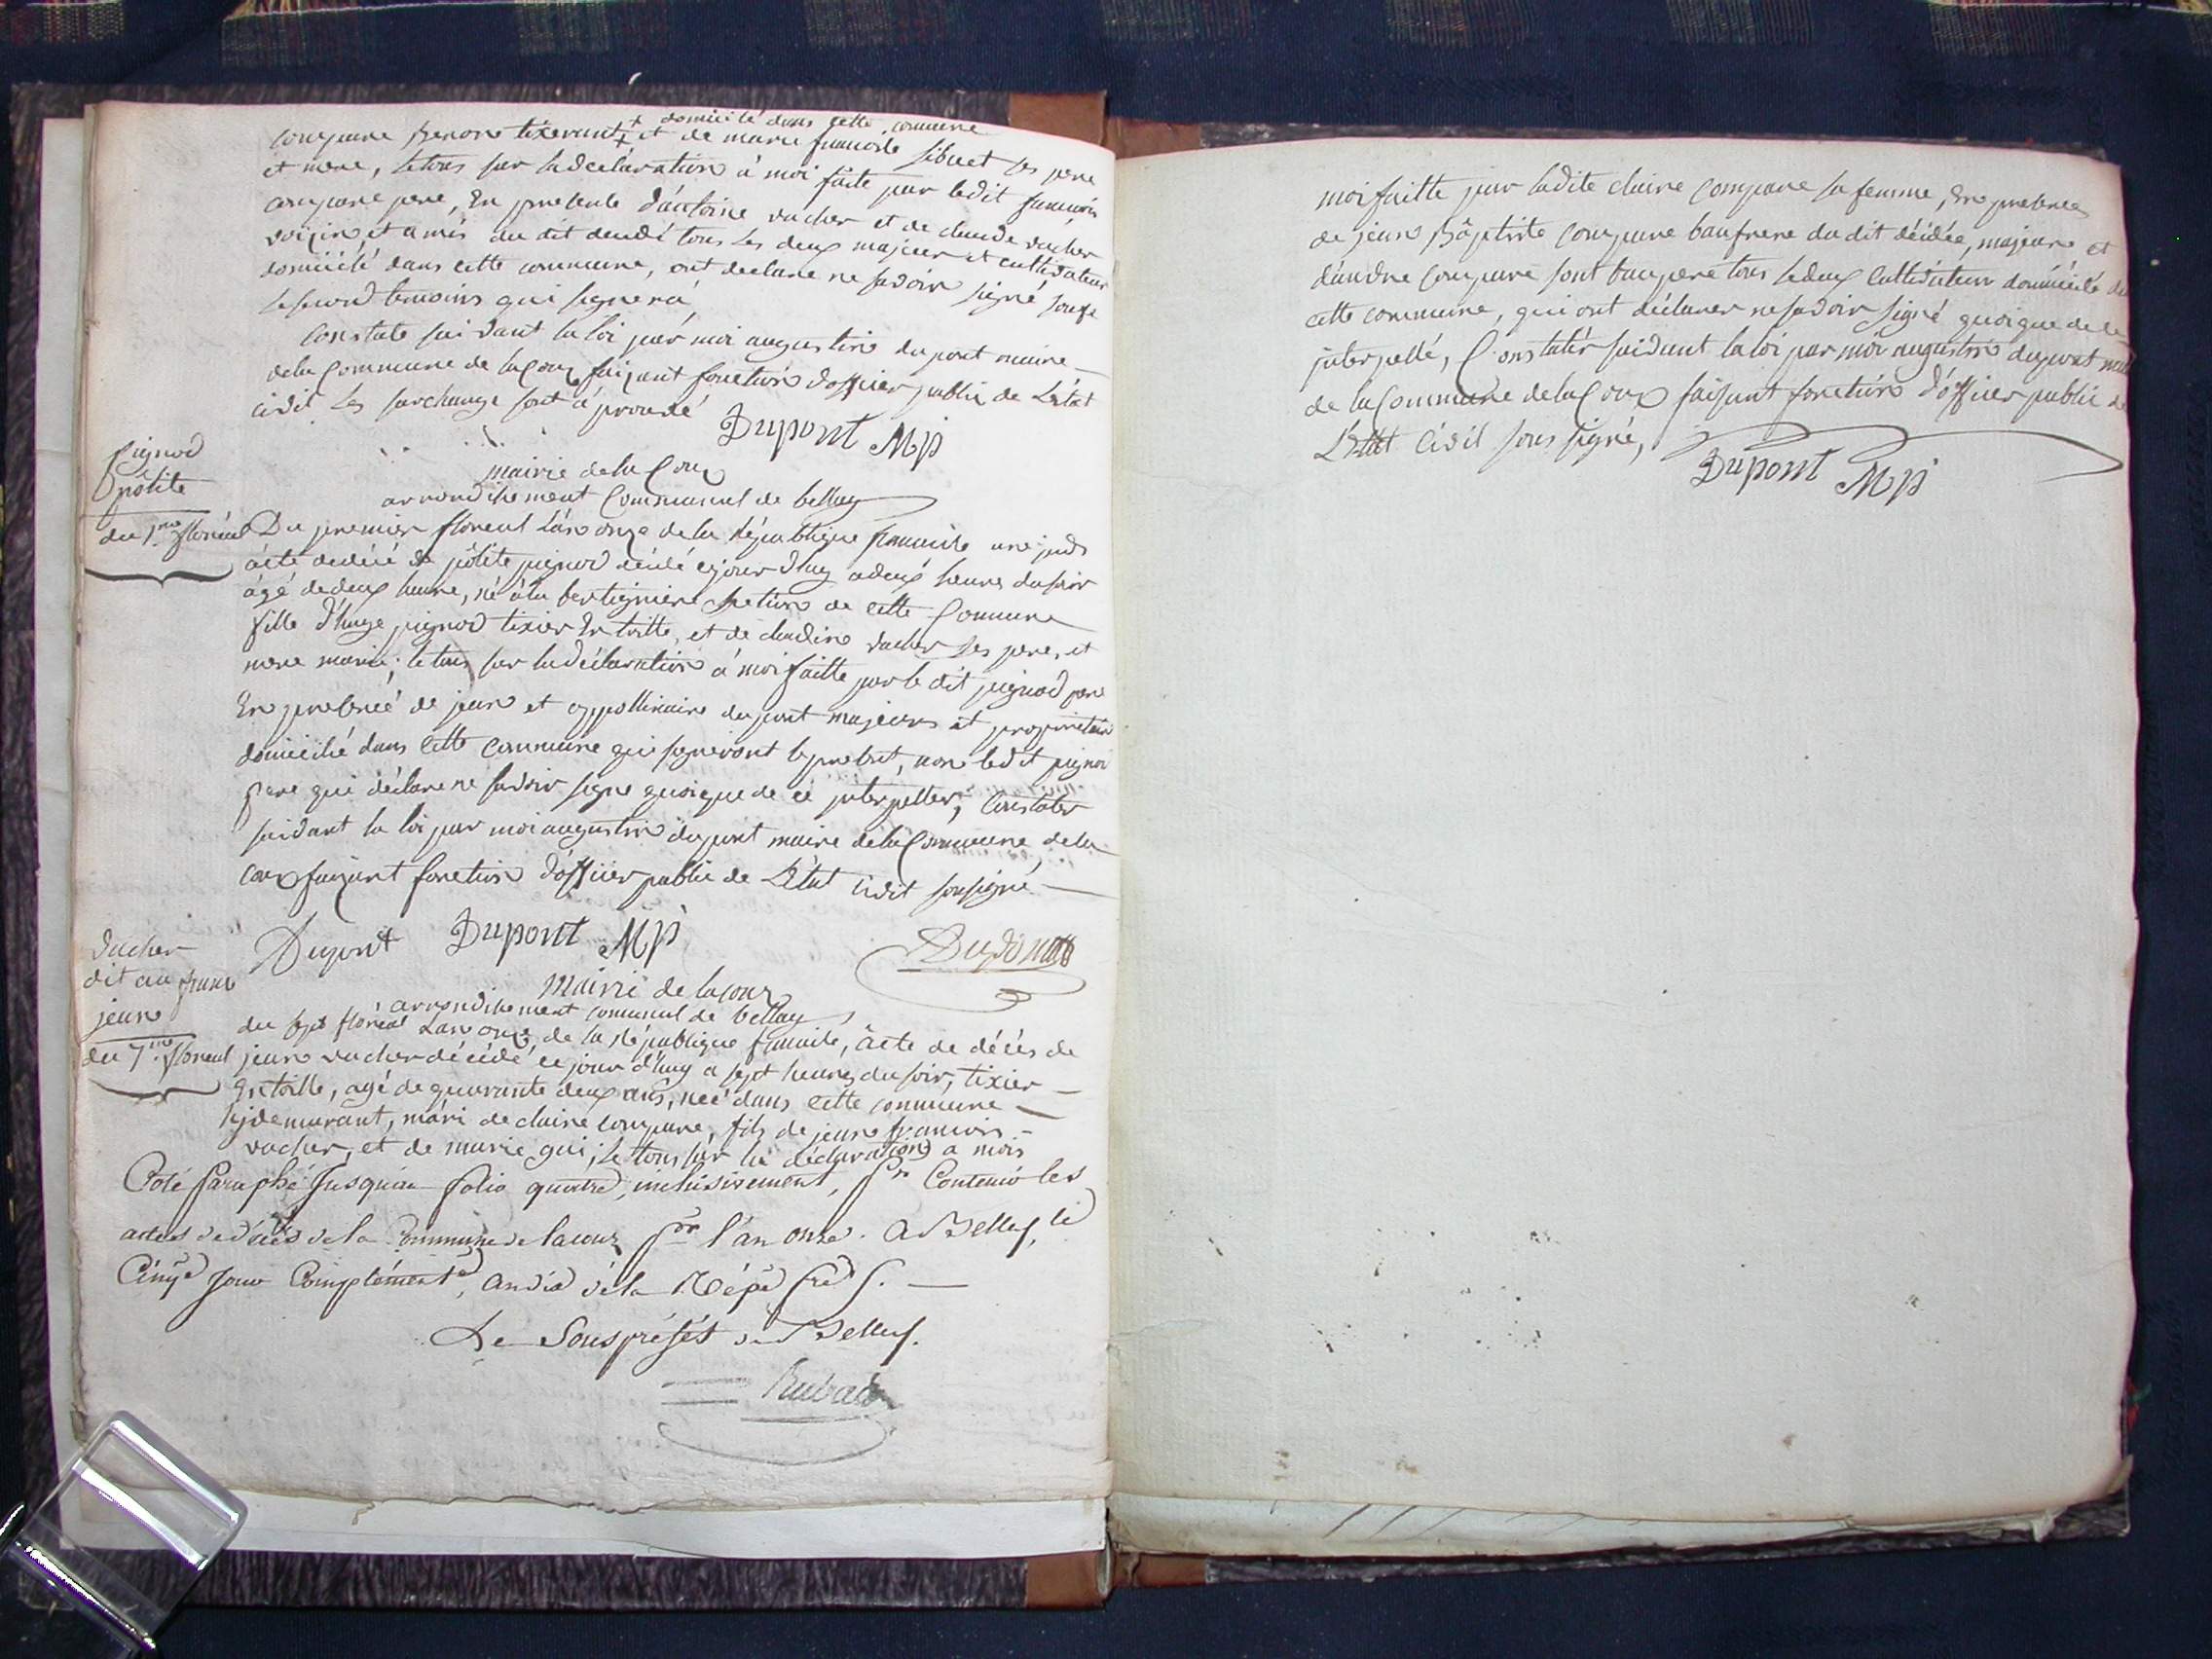 + domicilé dans cette comune
compare tixerant + et de marie francoise sibuet ses pere
et mere, le tous sur la declaration a moi faite par ledit francois
compare pere, En presence d'antoine vucher et de claude vucher
voizin et amis du dit decidé tous les deux majeur et cultivateur
domicilé dans cette commune, ont declare ne savoir signé
le second temoins qui signera
Constaté suivant la loi par moi augustin dupont maire
de la Commune de la Coux faizant fonction d'officier public de L'état
civil Les surcharge sont
Dupont M
pignod
pólite
du 1.er floréal
mairie de la Coux
arrondissement Communal de belley
Du premier floreal L'an onze de la République francaise
acte de décé de pólite pignod décidé ce jour d'huy a deux heures du soir
agé de deux heure, né à la section de cette Commune
fille d'huge pignod tixier En toille, et de claudine vucher ses pere et
mere marie; le tous sur la déclaration a moi faitte par le dit pignod pere
En presence de jean et appollinaire dupont majeurs et propriétair
domicilié dans cette commune qui signeront le present, non ledit pignod
pere qui déclare ne savoir signe quoique de ce interpeller, Constater
suivant la loi par moi augustin dupont maire de la Commune de la
coux faizant fonction d'officier public de L'état civil sousigné
Dupont Dupont M
Vucher
dit au
jean
du 7.me floreal
Mairie de la coux
arrondissement comunal de belley
du sept floréal Lan onze de la République francaise, acte de décés de
jean vucher décédé ce jour d'huy a sept heures du soir, tixier
En toille, agé de quarante deux ans, neé dans cette commune
y demurant, mari de claire compare, fils de jean francois
vucher et de marie gui; le tous sur la déclaration a mois
Coté Paraphé jusqu'au folio quatre, inclusivement, pr Contenir les
actes de décès de la Commune de lacoux pr l'an onze. A Belley, le
Cinqe Jour Complémente, an dix de la Répe fre.
Le Souspréfét de Belley.
moi faitte par ladite claire compare sa femme, En presences
de jean Baptiste compare baufrere du dit décidée, majeure et
d'andre compare sont baupere tous le deux cultivateur domicilé
cette commune, qui ont déclarer ne savoir signé quoique de ce
interpellé, Constatér suivant la loi par moi augustin dupont
de la Commune de la Coux faisant fonction d'officier public de
L'Etat Civil sous signé,
Dupont M